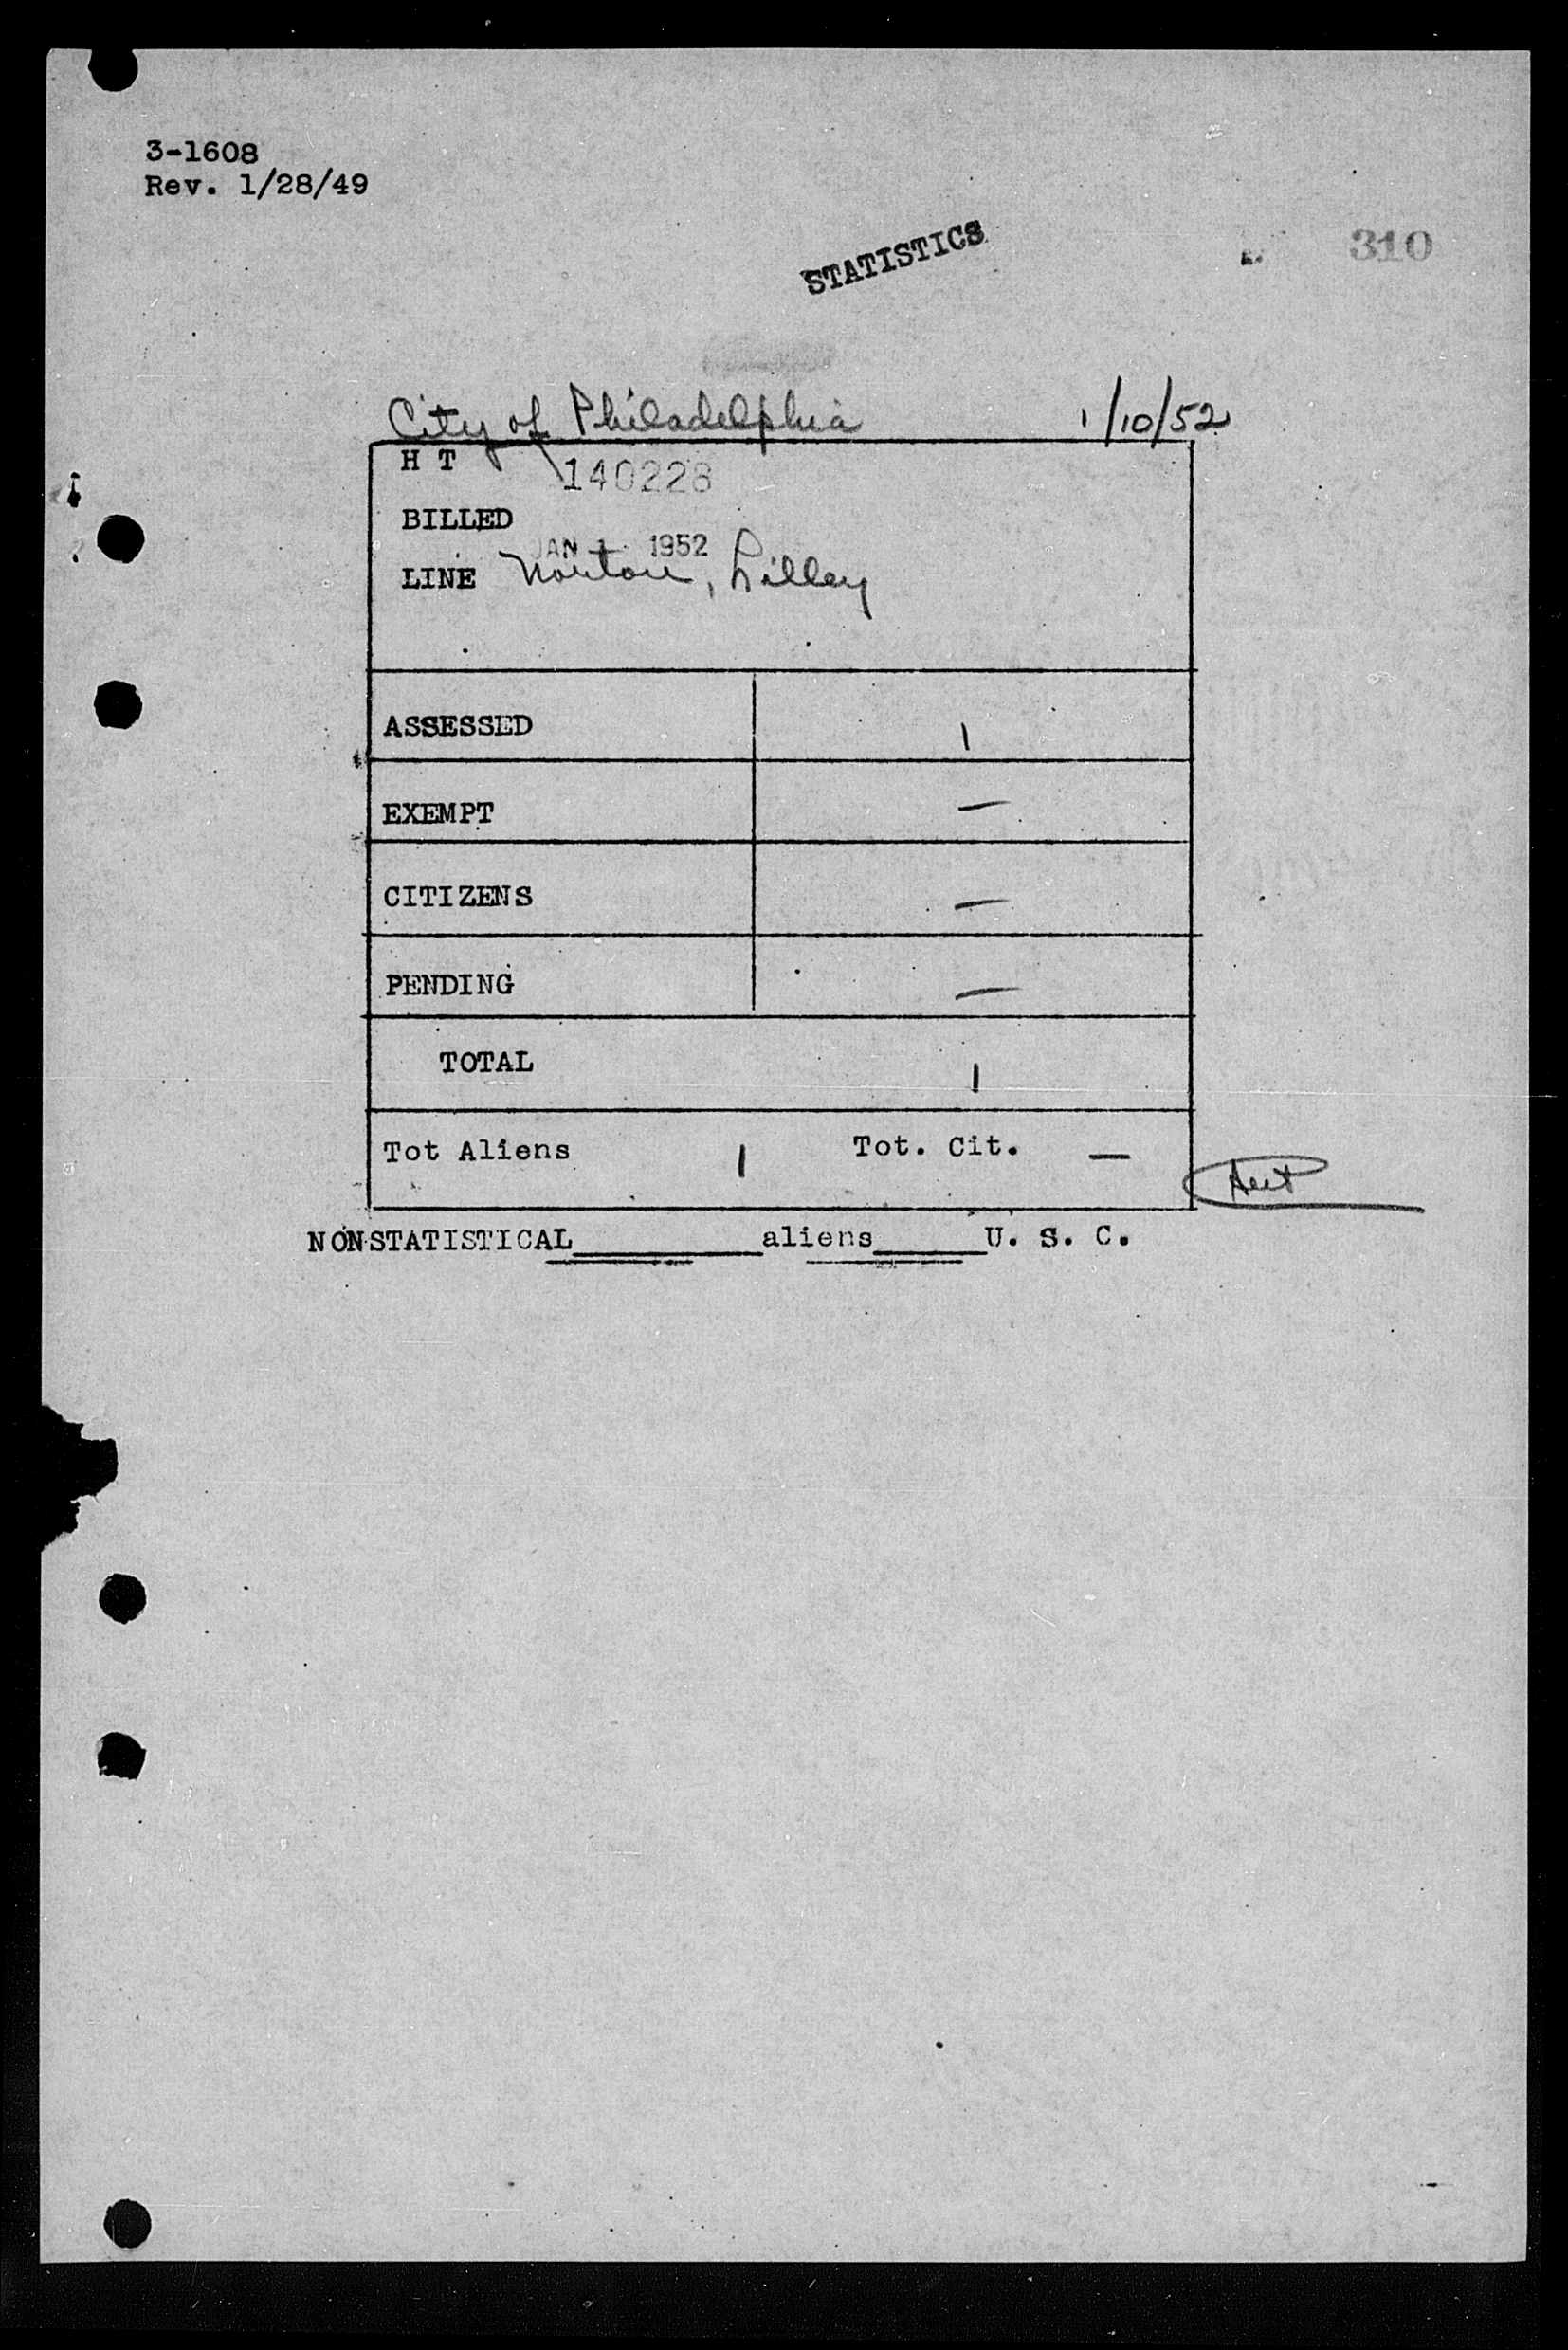 3-1608
Rev. 1/28/49
STATISTICS
310
City of Philadelphia 1/10/52
H T 140228
BILLED
JAN 1952
LINE Norton, Lilley
ASSESSED 1
EXEMPT —
CITIZENS —
PENDING —
TOTAL 1
Tot Aliens 1 Tot. Cit. —
NONSTATISTICAL__________aliens______U. S. C.